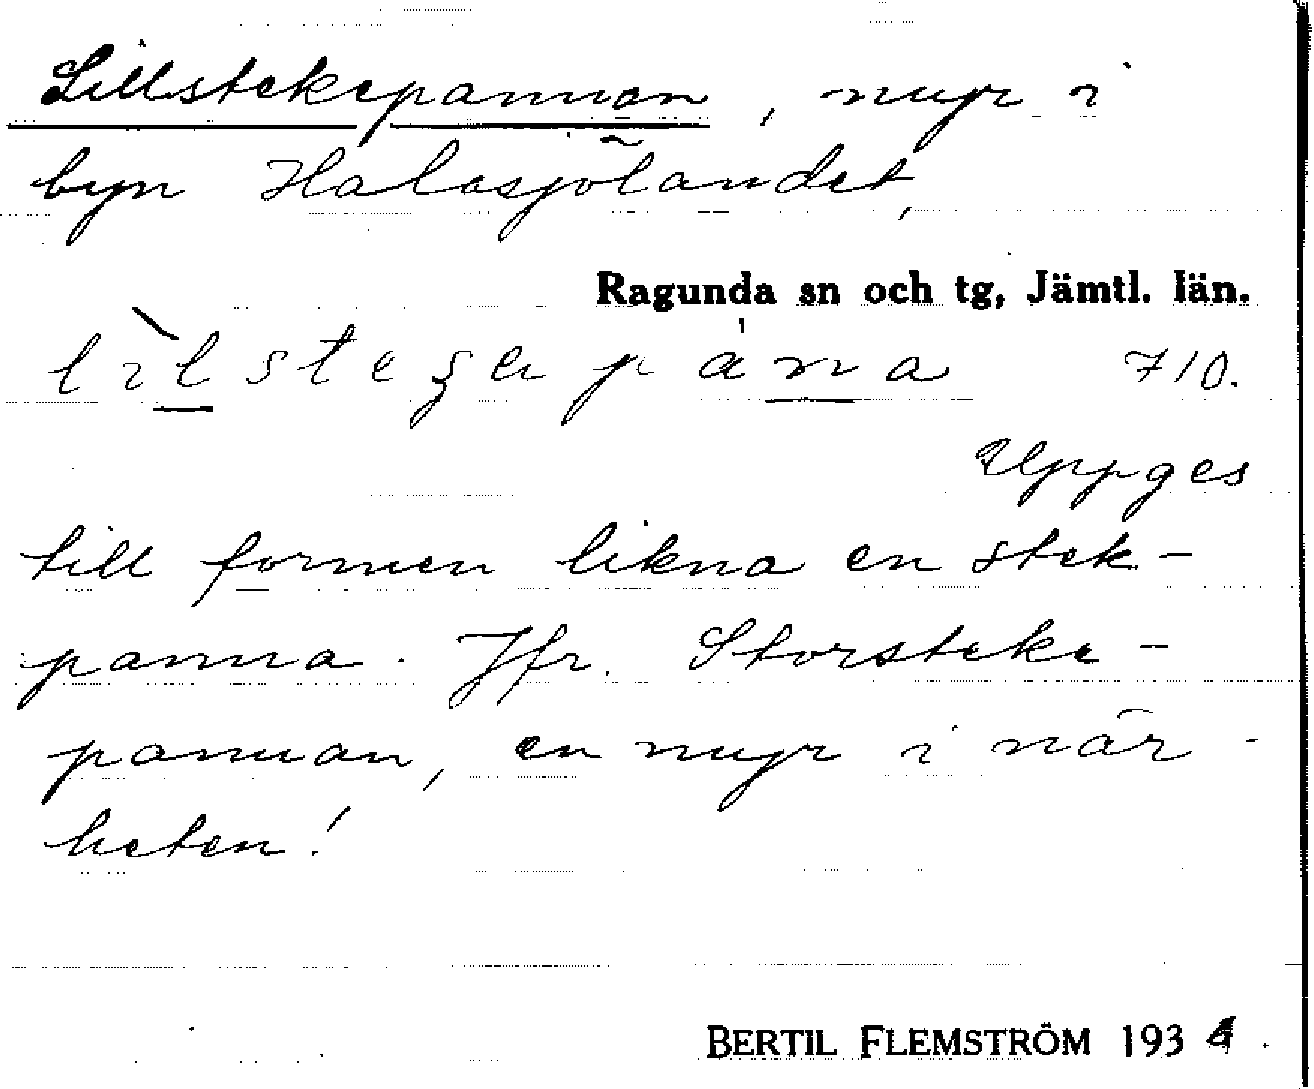 Lillstekepannan, myr i
byn Halasjölandet,
Ragunda sn och tg, Jämtl. län.
710.
Uppges
till formen likna en stek-
panna. Jfr. Storsteke-
pannan, en myr i när-
heten!
BERTIL FLEMSTRÖM 1934.